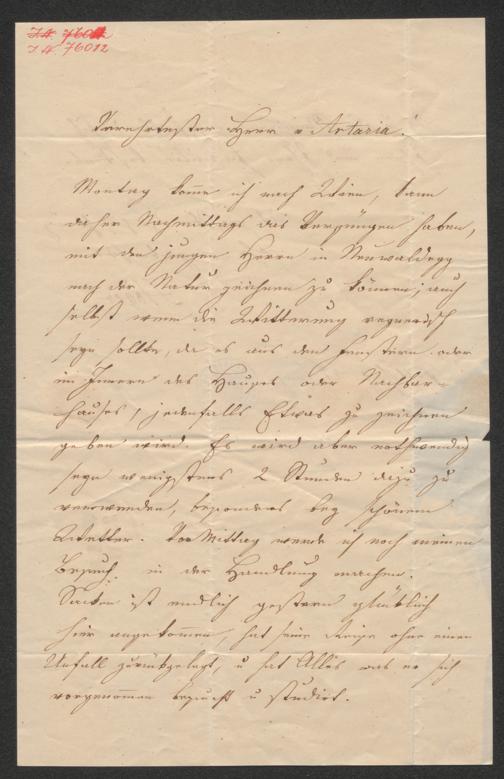 I N 76012
Verehrtester Herr v Artaria!
Montag kome ich nach Wien, kann
daher Nachmittags das Vergnügen haben,
mit den jungen Herrn in Neuwaldegg
nach der Natur zeichnen zu können, auch
selbst wenn die Witterung regnerisch
seyn sollte, da es aus den Fenstern oder
im Innern des Hauses oder Nachbar-
hauses, jedenfalls Etwas zu zeichnen
geben wird. Es wird aber nothwendig
seyn wenigstens 2 Stunden dazu zu
verwenden, besonders bey schönem
Wetter. Vor Mittag werde ich noch meinen
Besuch in der Handlung machen.
ist endlich gestern glücklich
hier angekommen, hat seine Reise ohne einen
Unfall zurückgelegt, u hat Alles was er sich
vorgenommen besucht u studirt.